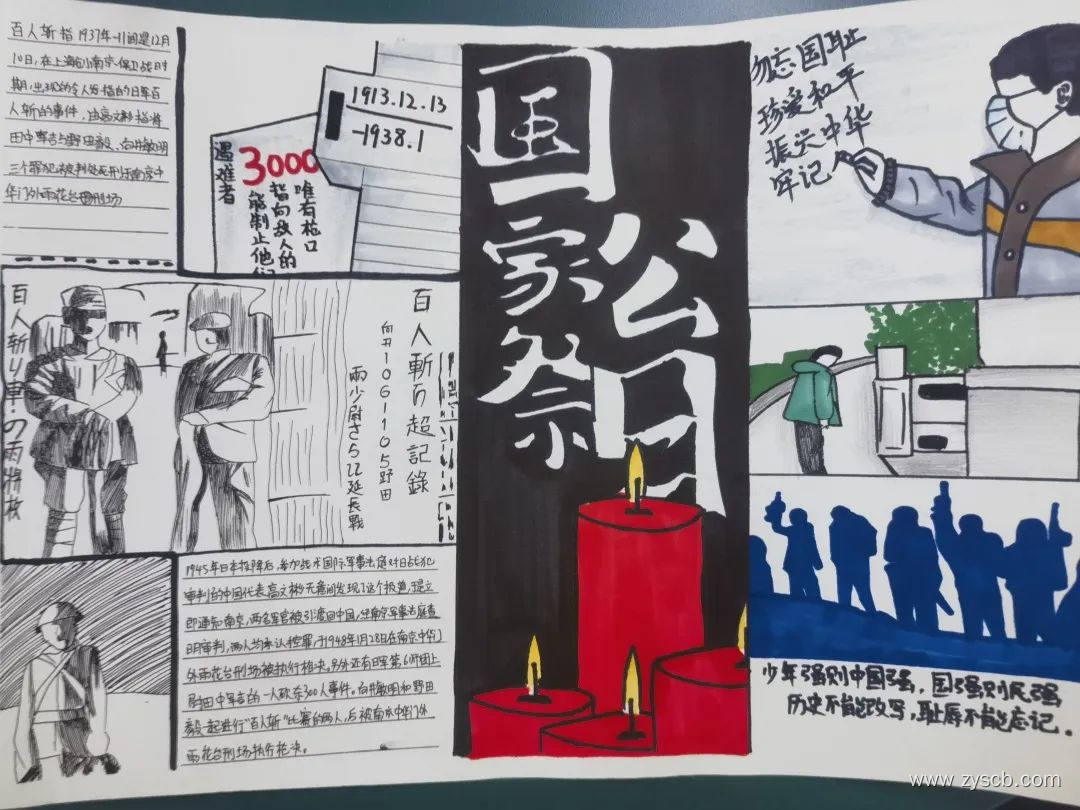 百人斩指1937年11间是12月
10日,在上海到南京保卫战时
期,出现的令人发指的日军百
人斩的事件,由高文彬指将
田中军吉与野田毅、向井敏明
三个罪犯被判处死刑于南京中
华门外雨花台刑场
1913.12.13
-1938.1
遇难者
3000
唯有枪口
指向敌人的
能制止他们
国家
公祭日
勿忘国耻
珍爱和平
振兴中华
牢记
百人斬り車の両将校
百人斬百超記錄
向井106-105野田
両少尉さらに延長戰
1945年日本投降后,参加战术国际军事法庭对日战犯
审判的中国代表高文彬无意间发现了这个报道,提立
即通知南京,两名军官被引渡回中国,经南京军事法庭查
明审判,两人均承认控罪,于1948年1月28日在南京中华门
外雨花台刑场被执行枪决。另外还有日军第6师团上
尉田中军吉的一人砍杀300人事件。向井敏明和野田
毅一起进行"百人斩"比赛的两人,后被南京中华门外
雨花台刑场执行枪决。
少年强则中国强,国强则民强
历史不能改写,耻辱不能忘记.
www.zyscb.com